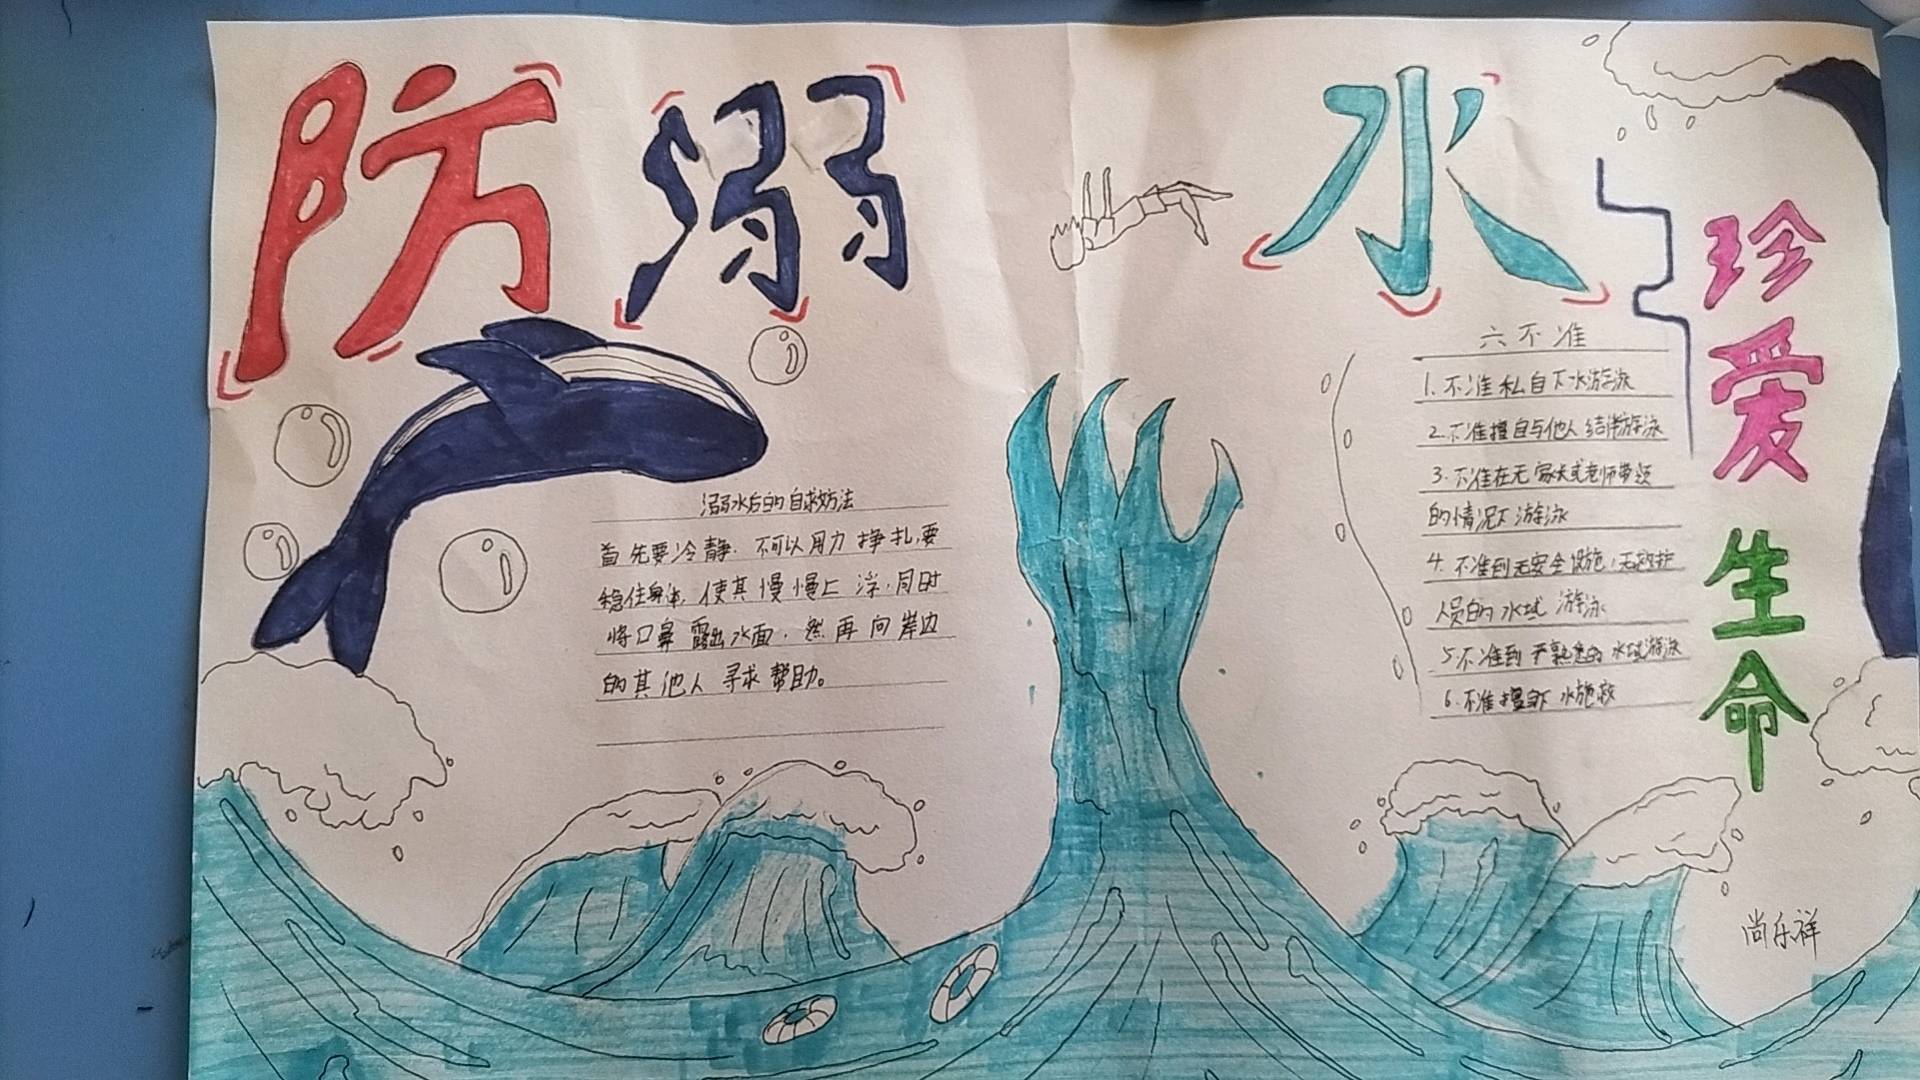 防溺水
珍爱生命
溺水后的自救方法
首先要冷静,不可以用力挣扎,要
稳住身体,使其慢慢上浮,同时
将口鼻露出水面,然再向岸边
的其他人寻求帮助。
六不准
1.不准私自下水游泳
2.不准擅自与他人结伴游泳
3.不准在无家长或老师带领
的情况下游泳
4.不准到无安全设施,无救护
人员的水域游泳
5.不准到不熟悉的水域游泳
6.不准擅自下水施救
尚乐祥